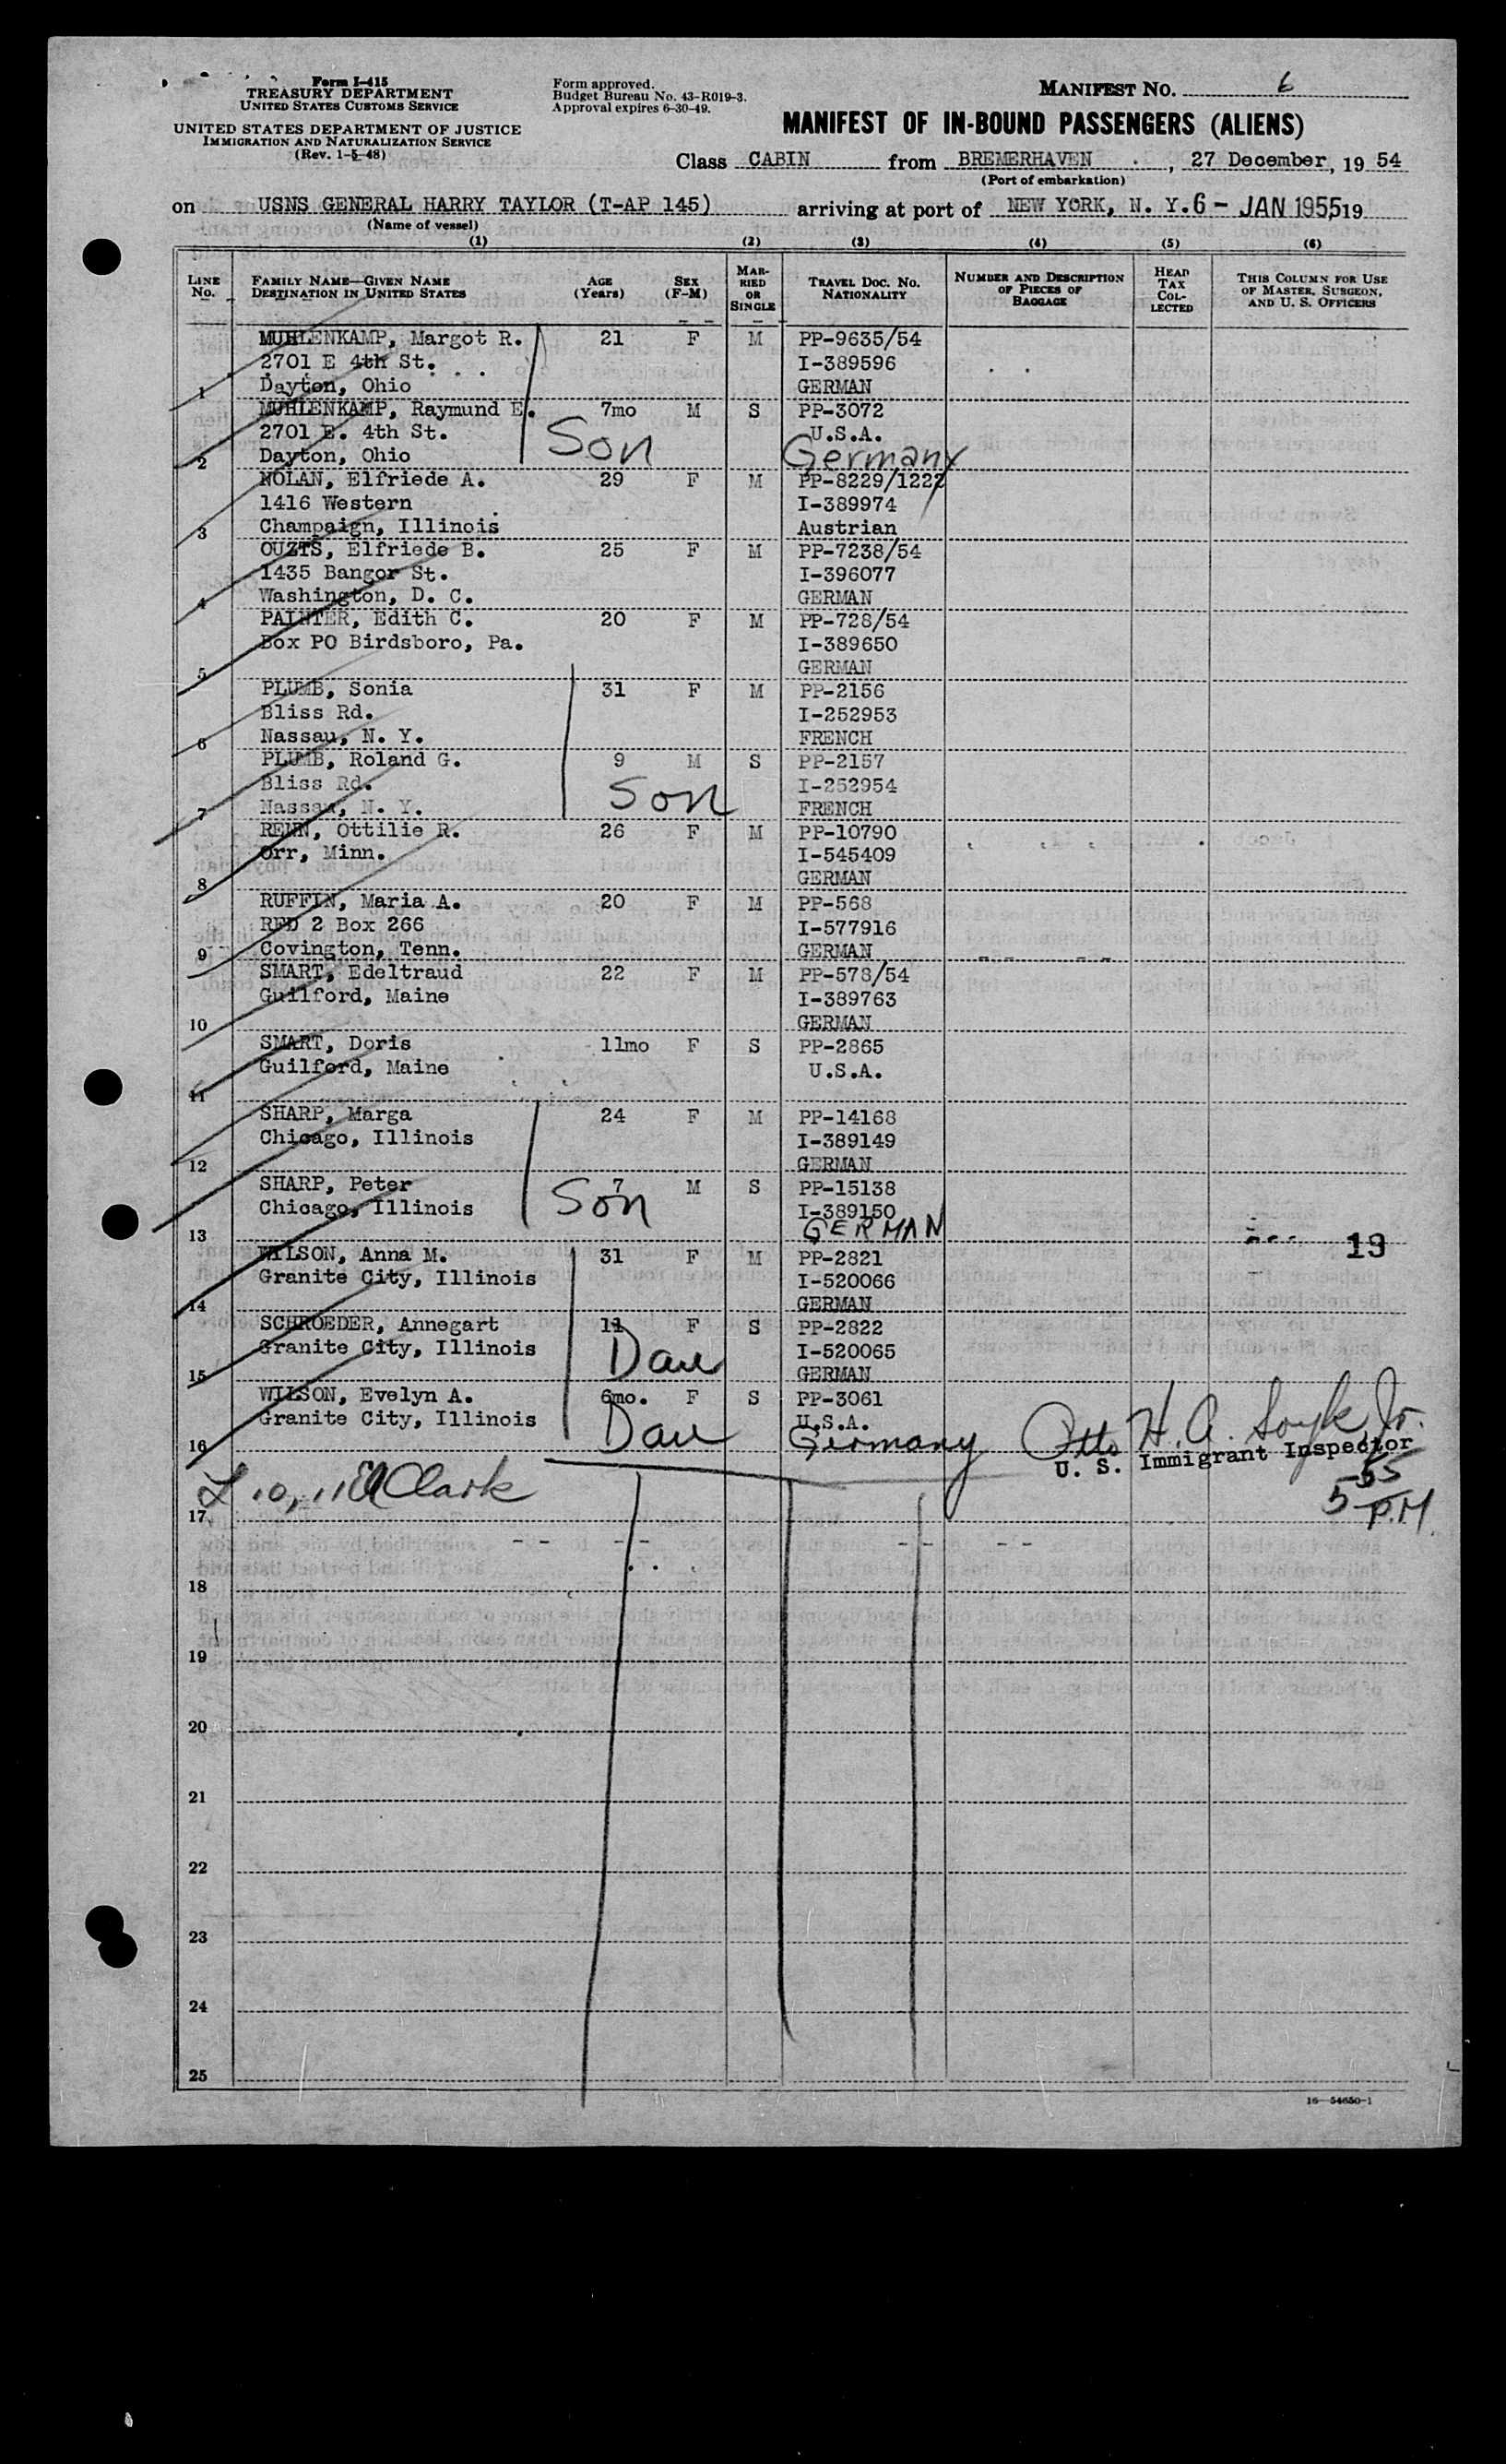 Form I-415
TREASURY DEPARTMENT
UNITED STATES CUSTOMS SERVICE
UNITED STATES DEPARTMENT OF JUSTICE
IMMIGRATION AND NATURALIZATION SERVICE
(Rev. 1-5-48)
Form approved.
Budget Bureau No. 43-R019-3.
Approval expires 6-30-49.
MANIFEST NO. 6
MANIFEST OF IN-BOUND PASSENGERS (ALIENS)
Class CABIN from BREMERHAVEN, 27 December, 1954
(Port of embarkation)
on USNS GENERAL HARRY TAYLOR (T-AP 145) arriving at port of NEW YORK, N. Y. 6 - JAN 1955, 19
(Name of vessel)
(1) (2) (3) (4) (5) (6)
LINE No. FAMILY NAME—GIVEN NAME DESTINATION IN UNITED STATES AGE (Years) SEX (F-M) MARRIED OR SINGLE TRAVEL DOC. NO. NATIONALITY NUMBER AND DESCRIPTION OF PIECES OF BAGGAGE HEAD TAX COLLECTED THIS COLUMN FOR USE OF MASTER, SURGEON, AND U. S. OFFICERS
MUHLENKAMP, Margot R. 21 F M PP-9635/54
2701 E 4th St. I-389596
1 Dayton, Ohio GERMAN
MUHLENKAMP, Raymund E. 7mo M S PP-3072
2701 E. 4th St. Son U.S.A.
2 Dayton, Ohio Germany
NOLAN, Elfriede A. 29 F M PP-8229/1222
1416 Western I-389974
3 Champaign, Illinois Austrian
OUZTS, Elfriede B. 25 F M PP-7238/54
1435 Bangor St. I-396077
4 Washington, D. C. GERMAN
PAINTER, Edith C. 20 F M PP-728/54
Box PO Birdsboro, Pa. I-389650
5 GERMAN
PLUMB, Sonia 31 F M PP-2156
Bliss Rd. I-252953
6 Nassau, N. Y. FRENCH
PLUMB, Roland G. 9 M S PP-2157
Bliss Rd. Son I-252954
7 Nassau, N. Y. FRENCH
RENN, Ottilie R. 26 F M PP-10790
Orr, Minn. I-545409
8 GERMAN
RUFFIN, Maria A. 20 F M PP-568
RFD 2 Box 266 I-577916
9 Covington, Tenn. GERMAN
SMART, Edeltraud 22 F M PP-578/54
Guilford, Maine I-389763
10 GERMAN
SMART, Doris 11mo F S PP-2865
Guilford, Maine U.S.A.
11
SHARP, Marga 24 F M PP-14168
Chicago, Illinois I-389149
12 GERMAN
SHARP, Peter 7 M S PP-15138
Chicago, Illinois Son I-389150
13 GERMAN 19
WILSON, Anna M. 31 F M PP-2821
Granite City, Illinois I-520066
14 GERMAN
SCHROEDER, Annegart 11 F S PP-2822
Granite City, Illinois Dau I-520065
15 GERMAN
WILSON, Evelyn A. 6mo. F S PP-3061
Granite City, Illinois Dau U.S.A.
16 Germany Otto H. A. Jr.
U. S. Immigrant Inspector
Clark 5 55 P.M.
17
18
19
20
21
22
23
24
25
16—54650-1